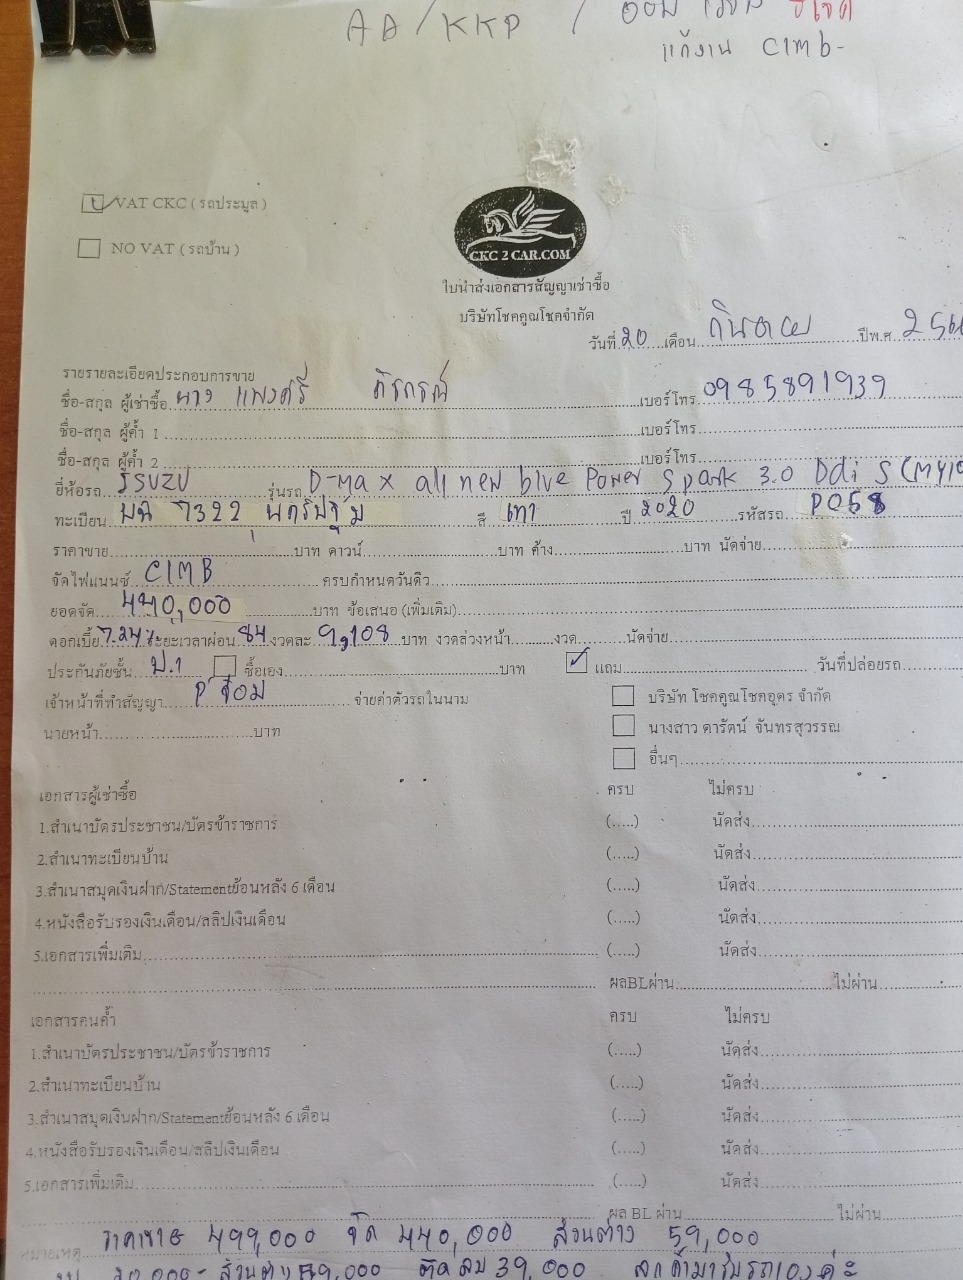 AA/KKP /
แก้งาน CIMB-
VAT CKC ( รถประมูล )
NO VAT ( รถบ้าน )
CKC 2 CAR.COM
ใบนำส่งเอกสารสัญญาเช่าซื้อ
บริษัทโชคคูณโชคจำกัด
วันที่ 20 เดือน กันยายน ปีพ.ศ.
รายรายละเอียดประกอบการขาย
ชื่อ-สกุล ผู้เช่าซื้อ นาง แพงศรี เบอร์โทร 0985891939
ชื่อ-สกุล ผู้ค้ำ 1 เบอร์โทร
ชื่อ-สกุล ผู้ค้ำ 2 เบอร์โทร
ยี่ห้อรถ ISUZU รุ่นรถ D-max all new blue Power Spark 3.0 Ddi S (MY19
ทะเบียน 7322 นครปฐม สี เทา ปี 2020 รหัสรถ P058
ราคาขาย บาท ดาวน์ บาท ค้าง บาท นัดจ่าย
จัดไฟแนนซ์ CIMB ครบกำหนดวันดิว
ยอดจัด 440,000 บาท ข้อเสนอ (เพิ่มเติม)
ดอกเบี้ย 7.24% ระยะเวลาผ่อน 84 งวดละ 9,108 บาท งวดล่วงหน้า งวด นัดจ่าย
ประกันภัยชั้น ป.1 ซื้อเอง บาท แถม วันที่ปล่อยรถ
เจ้าหน้าที่ทำสัญญา จ่ายค่าตัวรถในนาม บริษัท โชคคูณโชคอุดร จำกัด
นายหน้า บาท นางสาว ดารัตน์ จันทรสุวรรณ
อื่นๆ
เอกสารผู้เช่าซื้อ ครบ ไม่ครบ
1.สำเนาบัตรประชาชน/บัตรข้าราชการ (.....) นัดส่ง
2.สำเนาทะเบียนบ้าน (.....) นัดส่ง
3.สำเนาสมุดเงินฝาก/Statementย้อนหลัง 6 เดือน (.....) นัดส่ง
4.หนังสือรับรองเงินเดือน/สลิปเงินเดือน (.....) นัดส่ง
5.เอกสารเพิ่มเติม (.....) นัดส่ง
ผลBLผ่าน ไม่ผ่าน
เอกสารคนค้ำ ครบ ไม่ครบ
1.สำเนาบัตรประชาชน/บัตรข้าราชการ (.....) นัดส่ง
2.สำเนาทะเบียนบ้าน (.....) นัดส่ง
3.สำเนาสมุดเงินฝาก/Statementย้อนหลัง 6 เดือน (.....) นัดส่ง
4.หนังสือรับรองเงินเดือน/สลิปเงินเดือน (.....) นัดส่ง
5.เอกสารเพิ่มเติม (.....) นัดส่ง
ผล BL ผ่าน ไม่ผ่าน
หมายเหตุ ราคาขาย 499,000 จัด 440,000 ส่วนต่าง 59,000
20,000- ส่วนต่าง 59,000 39,000